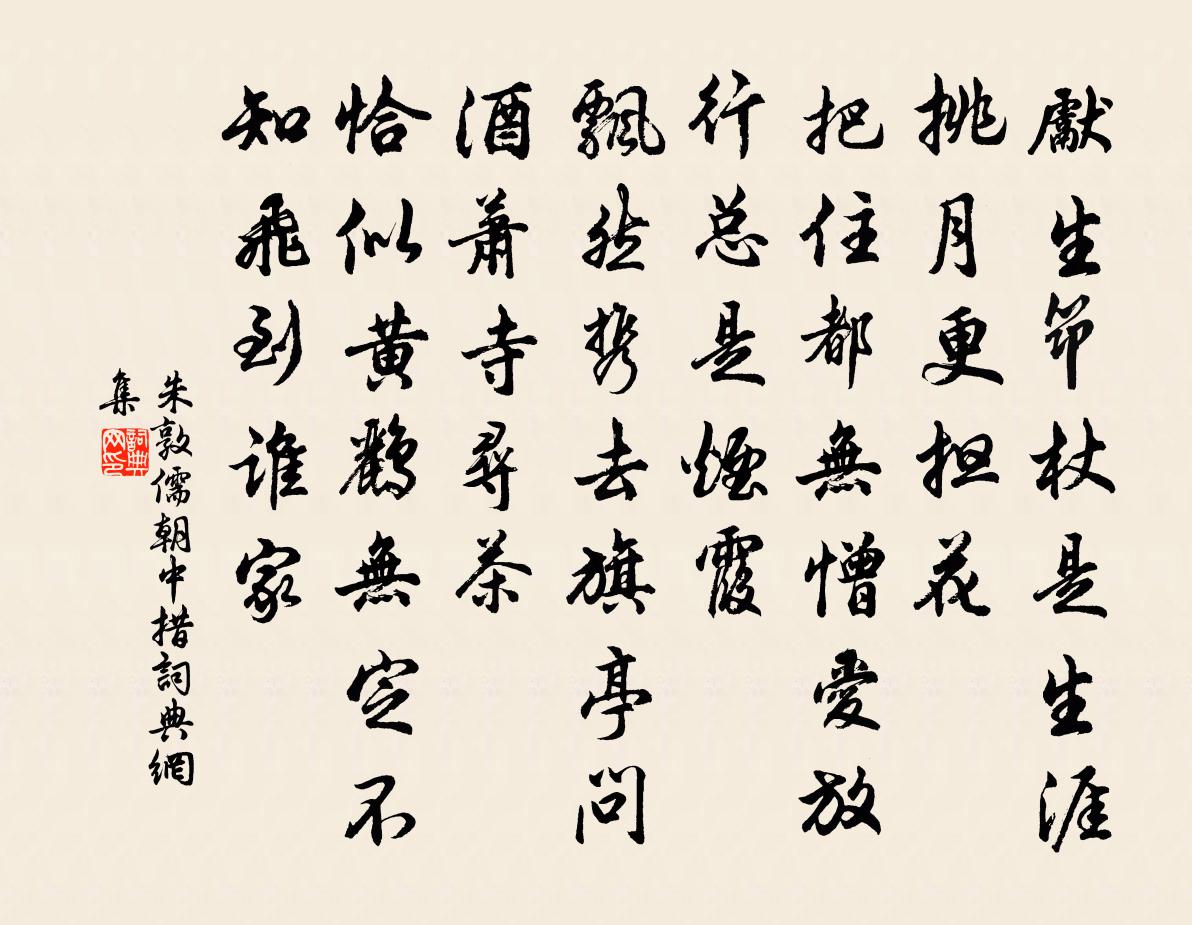 獻生筇杖是生涯
挑月更担花
把住都無憎愛放
行总是煙霞
飄然携去旗亭問
酒蕭寺尋茶
恰似黄鸝無定不
知飛到谁家
朱敦儒朝中措詞典網
集
詞典网印